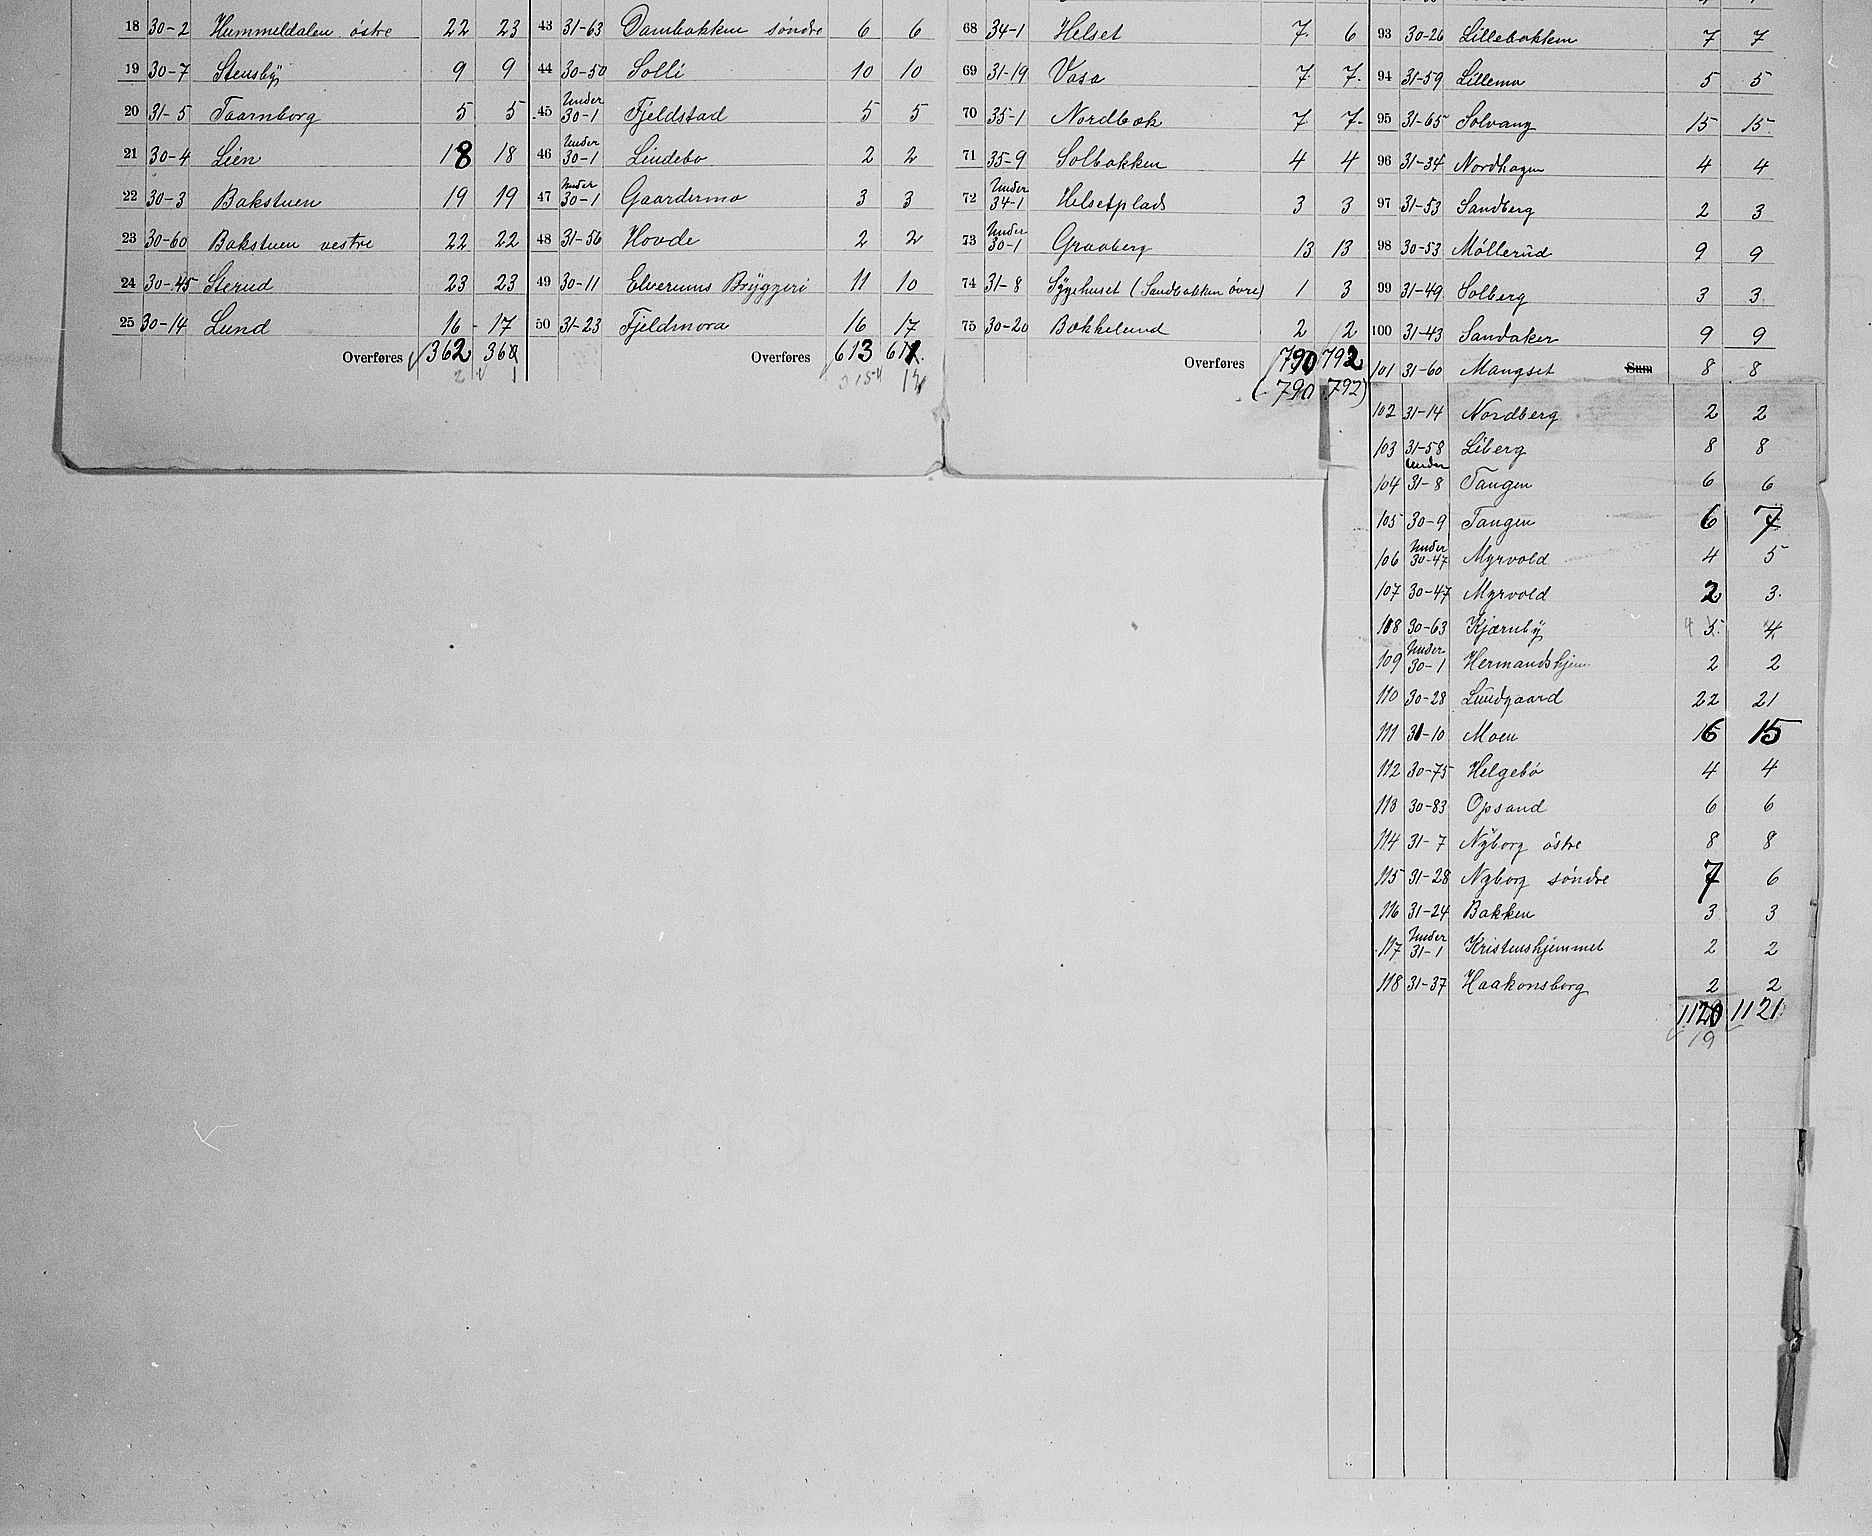 18 30-2 Hummeldalen østre 22 23
19 30-7 Stensby 9 9
20 31-5 Taarnborg 5 5
21 30-4 Lien 18 18
22 30-3 Bakstuen 19 19
23 30-60 Bakstuen vestre 22 22
24 30-45 Sterud 23 23
25 30-14 Lund 16 17
Overføres 362 360
2 1
43 31-63 Dambakken søndre 6 6
44 30-50 Solli 10 10
45 Under 30-1 Fjeldstad 5 5
46 Under 30-1 Lindebo 2 2
47 Under 30-1 Gaardermo 3 3
48 31-56 Hovde 2 2
49 30-11 Elverums Bryggeri 11 10
50 31-23 Fjeldmora 16 17
Overføres 613 611
68 34-1 Helset 7 6
69 31-19 Vasa 7 7
70 35-1 Nordbæk 7 7
71 35-9 Solbakken 4 4
72 Under 34-1 Helsetplads 3 3
73 Under 30-1 Graaberg 13 13
74 31-8 Sygehuset (Sandbakken øvre) 1 3
75 30-20 Bækkelund 2 2
Overføres 790 792
(790 792)
93 30-26 Lillebakken 7 7
94 31-59 Lillemo 5 5
95 31-65 Solvang 15 15
96 31-34 Nordhagen 4 4
97 31-53 Sandberg 2 3
98 30-53 Møllerud 9 9
99 31-49 Solberg 3 3
100 31-43 Sandaker 9 9
101 31-60 Mangset Sum 8 8
102 31-14 Nordberg 2 2
103 31-58 Liberg 8 8
104 Under 31-8 Tangen 6 6
105 30-9 Tangen 6 7
106 Under 30-47 Myrvold 4 5
107 30-47 Myrvold 2 3
108 30-63 Kjærnby 4 5 4
109 Under 30-1 Hermandshjem 2 2
110 30-28 Lundgaard 22 21
111 31-10 Moen 16 15
112 30-75 Helgebø 4 4
113 30-83 Opsand 6 6
114 31-7 Nyborg østre 8 8
115 31-28 Nyborg søndre 7 6
116 31-24 Bakken 3 3
117 Under 31-1 Kristenshjemmet 2 2
118 31-37 Haakonsborg 2 2
1120 1121
19